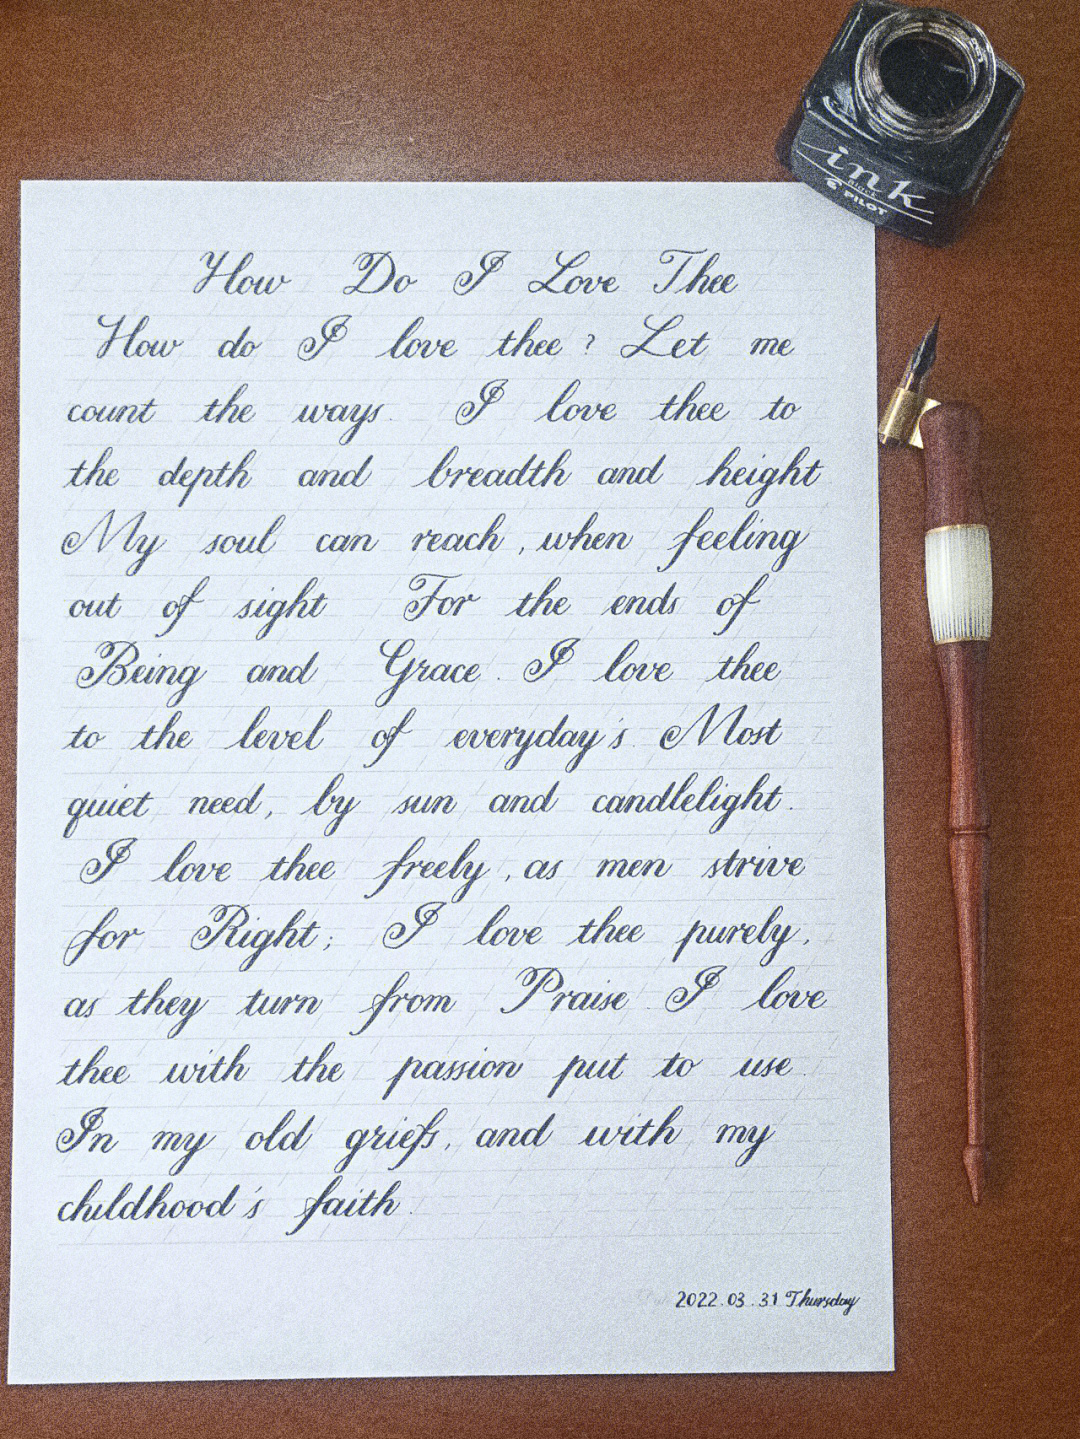 ink
Black
PILOT
How Do I Love Thee
How do I love thee? Let me
count the ways. I love thee to
the depth and breadth and height
My soul can reach, when feeling
out of sight For the ends of
Being and Grace. I love thee
to the level of everyday's Most
quiet need, by sun and candlelight.
I love thee freely, as men strive
for Right; I love thee purely,
as they turn from Praise. I love
thee with the passion put to use.
In my old griefs, and with my
childhood's faith.
2022.03.31 Thursday